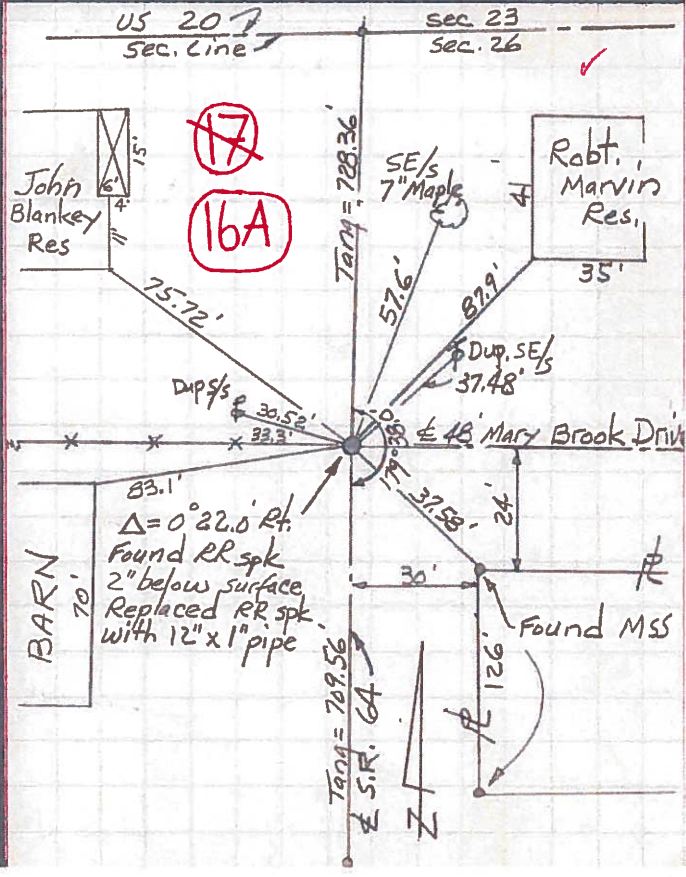 US 20
sec. Line
sec. 23
sec. 26
17
16A
15'
6'
4'
11
John
Blankey
Res
Tang = 728.36'
SE/s
7" Maple
Robt.
Marvin
Res.
41
35'
75.72'
57.6'
87.9'
Dup. SE/s
37.48'
Dup S/s
30.52'
33.3'
179° 38.0'
₵ 48' Mary Brook Driv
83.1'
Δ = 0° 22.0' Rt.
Found RR spk
2" below surface
Replaced RR. spk.
with 12" x 1" pipe
BARN
70'
37.58'
24'
30'
PL
Found MSS
126'
PL
Tang = 709.56'
₵ S.R. 64
Z